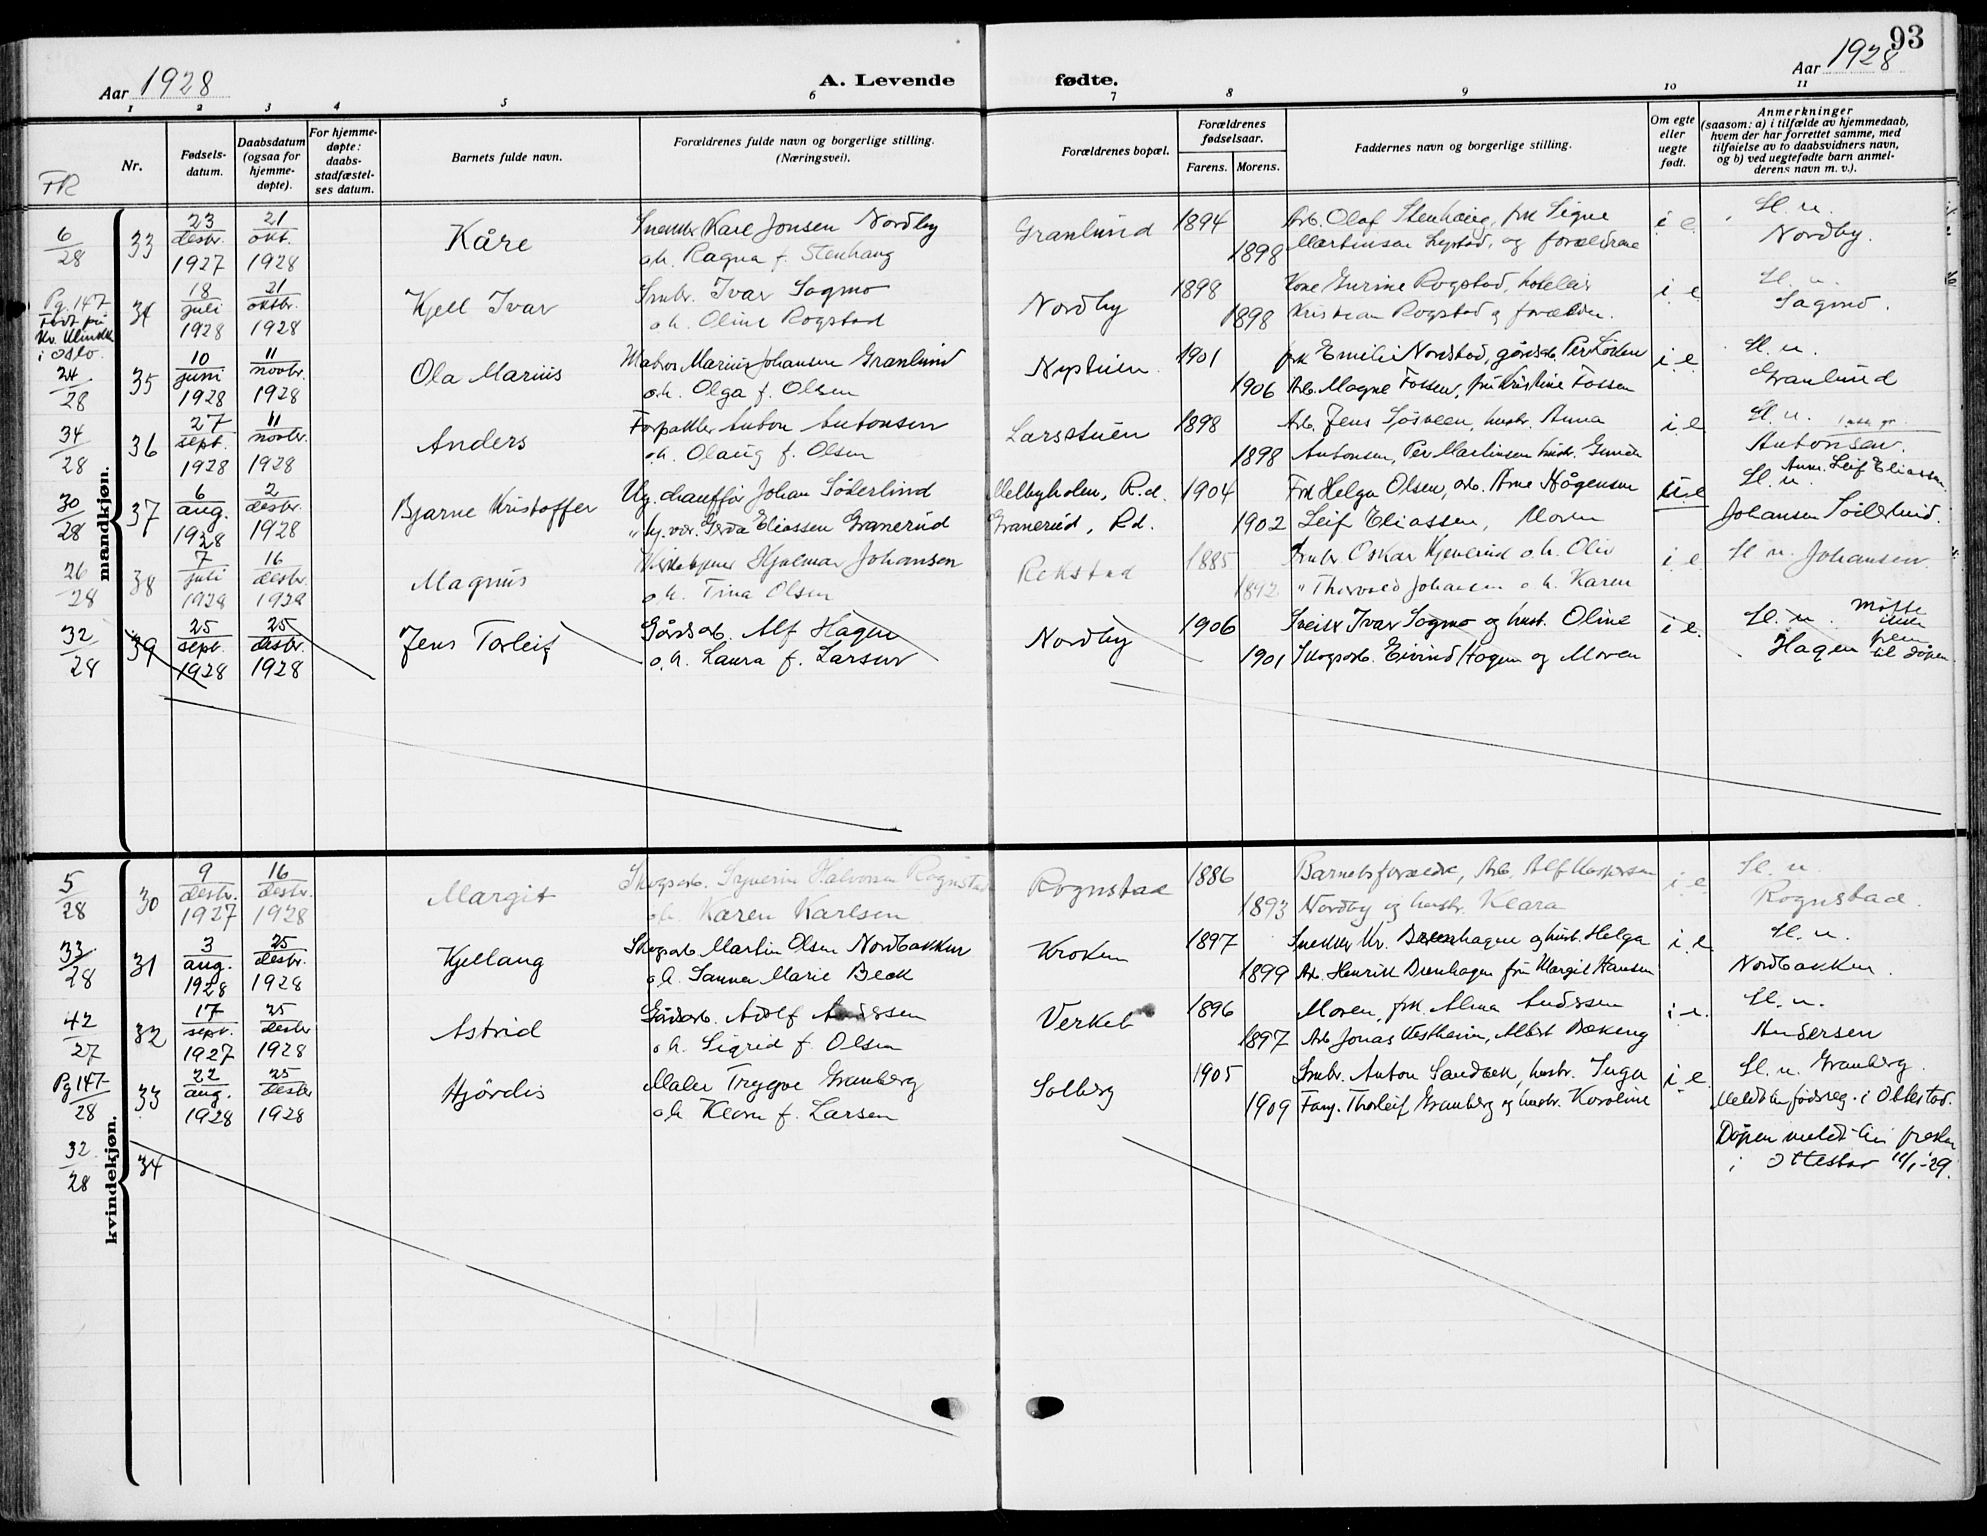 93
Aar 1928
A. Levende fødte.
Aar 1928
1 2 3 4 5 6 7 8 9 10 11
FR
Nr.
Fødsels-
datum.
Daabsdatum
(ogsaa for
hjemme-
døpte).
For hjemme-
døpte:
daabs-
stadfæstel-
ses datum.
Barnets fulde navn.
Forældrenes fulde navn og borgerlige stilling.
(Næringsvei).
Forældrenes bopæl.
Forældrenes
fødselsaar.
Farens. Morens.
Faddernes navn og borgerlige stilling.
Om egte
eller
uegte
født.
Anmerkninger
(saasom: a) i tilfælde av hjemmedaab,
hvem der har forrettet samme, med
tilføielse av to daabsvidners navn,
og b) ved uegtefødte barn anmel-
derens navn m. v.).
mandkjøn.
6/28 33 23/desbr. 1927 21/okt. 1928 Kåre
Snekker Kåre Jonsen Nordby
o.h. Ragna f. Stenhaug
Granlund 1894 1898
Arb. Olaf Stenhaug, frk Signe
Martinsen, og forældrene
i e. Sl. u.
Nordby.
Pg. 147
Født på
Kv. Klinikk
i Oslo.
34 18/juli 1928 21/oktbr. 1928 Kjell Ivar
Smbr. Ivar Sagmo
o.h. Oline Rogstad
Nordby 1898 1898
Kone Gurine Rogstad,
Kristian Rogstad og forældre.
i e Sl. u.
Sagmo.
24/28 35 10/juni 1928 11/novbr. 1928 Ola Marius
Matros Marius Johansen Granlund
o.h. Olga f. Olsen
Nystuen. 1901 1906
frk Emilie Nordstad, gårdsb. Per Løken
Arb. Magne Fossen, fru Kristine Fossen
i e Sl. u.
Granlund
34/28 36 27/sept. 1928 11/novbr. 1928 Anders
Forpakter Anton Antonsen
o.h. Olaug f. Olsen
Larsstuen 1898 1898
Arb. Jens Sjøsveen, hustr. Anna
Antonsen, Per Martinsen hustr.
i e Sl. u.
Antonsen.
30/28 37 6/aug. 1928 2/desbr. 1928 Bjarne Kristoffer
Ug. chauffør Johan Söderlind
Gerda Eliassen Granerud
Melbyholen, R.d.
Granerud, Rd.
1904 1902
Frk Helga Olsen, arb. Arne Hågensen
Leif Eliassen, Moren
u e Sl. u. Anm. Leif Eliassen.
Johansen Söderlind.
26/28 38 7/juli 1928 16/desbr. 1928 Magnus
Kirketjener Hjalmar Johansen
o.h. Tina Olsen
Rekstad 1885 1892
Smbr Oskar Kjeverud o.h. Oliv
" Thorvald Johansen o.h. Karen
i e Sl. u. Johansen.
32/28 39 25/sept. 1928 25/desbr. 1928 Jens Torleif
Gårdsarb. Alf Hagen
o.h. Laura f. Larsen
Nordby 1906 1901
Ivar Sagmo og hust. Oline
Skogsarb. Eivind Hagen og Moren
i e. Sl. u. møtte
ikke
Hagen frem
til dåpen.
kvindekjøn.
5/28 30 9/desbr. 1927 16/desbr. 1928 Margit
Skogsarb. Syverin Halvorsen Rognstad
o.h. Karen Karlsen
Rognstad 1886 1893
Barnets forældre, Arb. Alf Kaspersen
Nordby og hustr. Klara
i e Sl. u.
Rognstad.
33/28 31 3/aug. 1928 25/desbr. 1928 Kjellaug
Skogsarb. Martin Olsen Nordbakken
o.h. Sanna Marie Beck
Kroken 1897 1899
Snekker Kr. Brenhagen og hust. Helga
Arb. Henrik Brenhagen fru Margit Hansen
i e. Sl. u.
Nordbakken.
42/27 32 17/sept. 1927 25/desbr 1928 Astrid
Gårdsarb. Adolf Andersen
o.h. Sigrid f. Olsen
Verket 1896 1897
Moren, frk. Alma Andersen
Arb Jonas Vestheim, Albert Bækeng
i e. Sl. u.
Andersen
Pg 147/28 33 22/aug. 1928 25/desbr 1928 Hjördis
Maler Trygve Granberg
o.h. Klara f. Larsen
Solberg 1905 1909
Smbr. Anton Sandbæk, hustr. Inga
Fang. Thorleif Granberg og hustr. Karoline
i e. Sl. u. Granberg.
Meldt til fødsreg. i Ottestad.
Dåpen meldt til presten
i Ottestad 11/1-29.
32/28 34